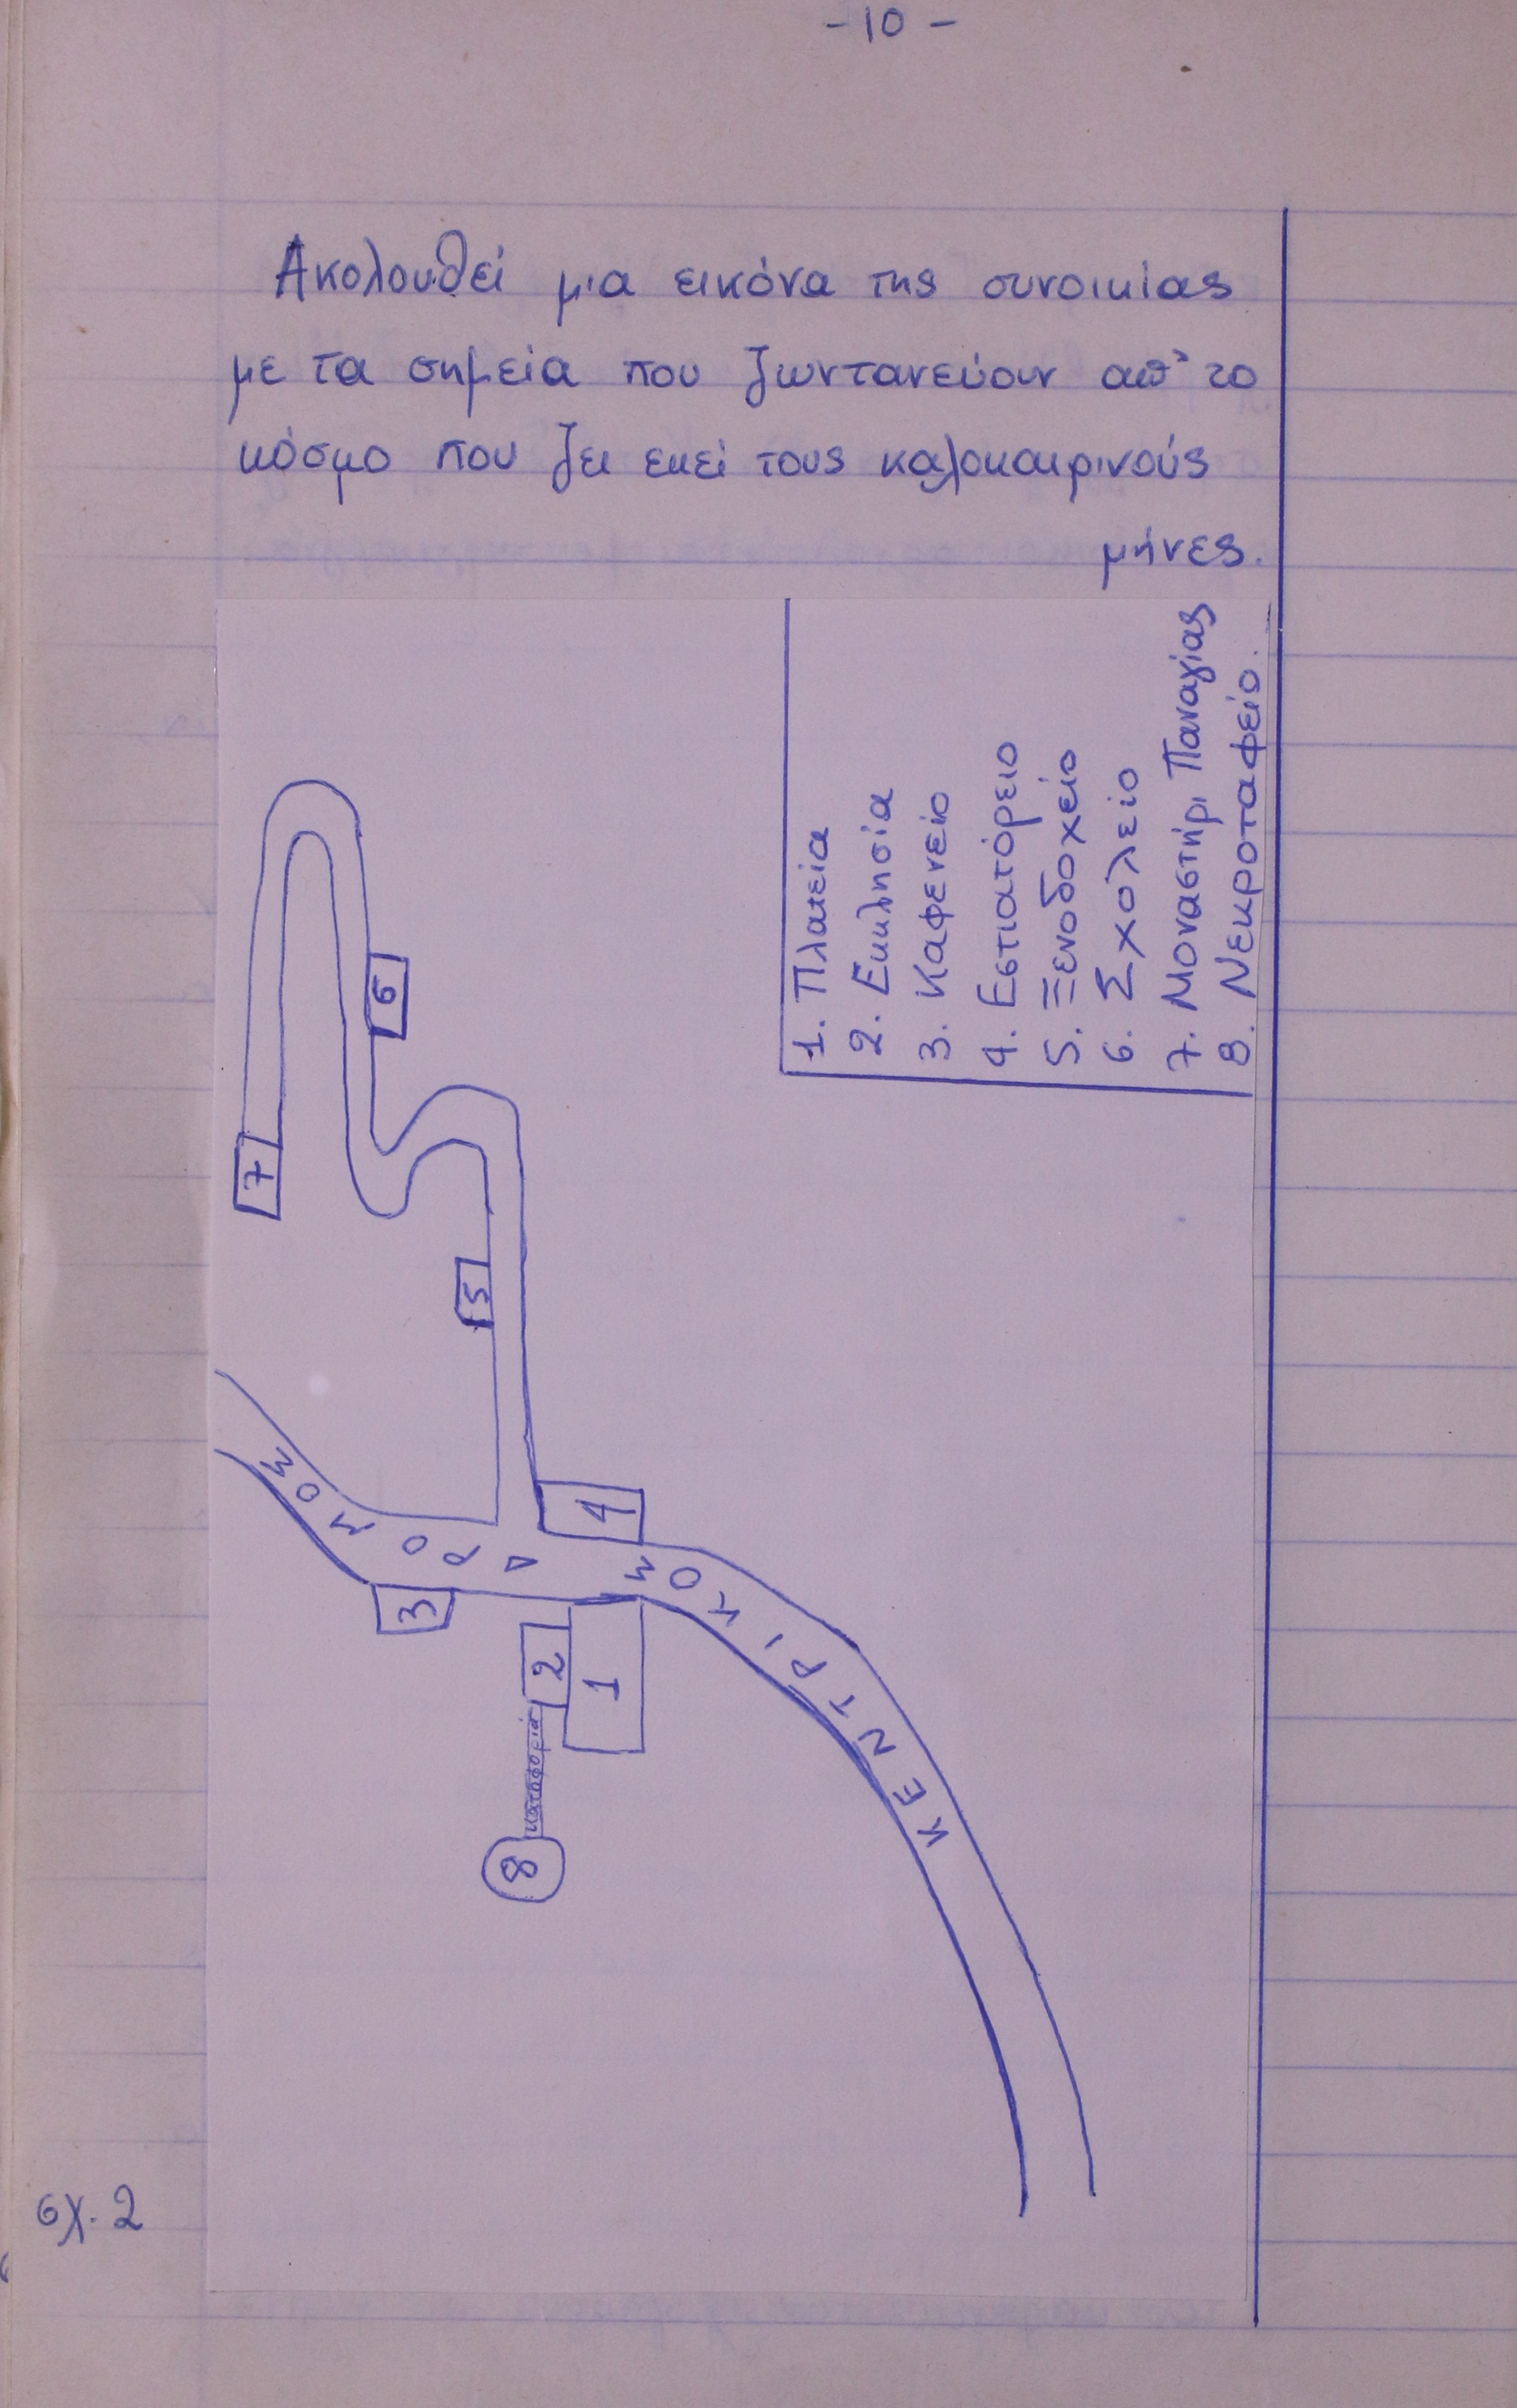 - 10 -
Ακολουθεί μια εικόνα της συνοικίας
με τα σημεία που ζωντανεύουν απ' το
κόσμο που ζει εκεί τους καλοκαιρινούς
μήνες.
1. Πλατεία
2. Εκκλησία
3. Καφενείο
4. Εστιατόρειο
5. Ξενοδοχείο
6. Σχολείο
7. Μοναστήρι Παναγίας
8. Νεκροταφείο.
7
6
5
4
3
2
1
8
κατηφοριά
ΚΕΝΤΡΙΚΟΣ ΔΡΟΜΟΣ
σχ. 2